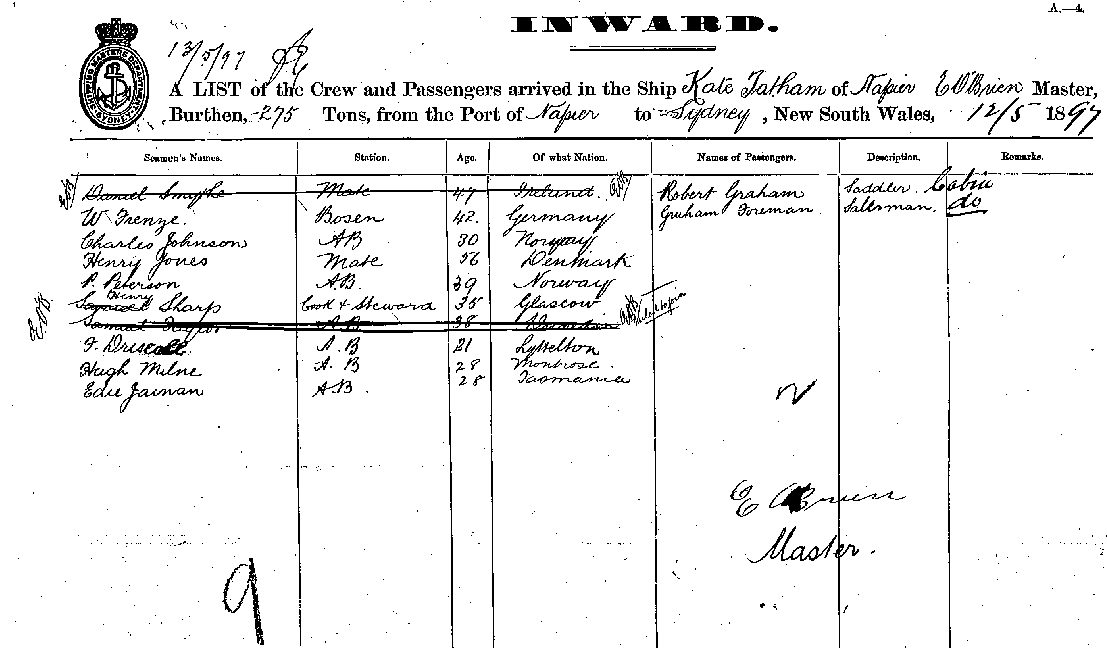 A.—4.
INWARD.
13/5/97
SHIPPING MASTERS DEPARTMENT SYDNEY
A LIST of the Crew and Passengers arrived in the Ship Kate Tatham of Napier E O'Brien Master,
Burthen, 275 Tons, from the Port of Napier to Sydney, New South Wales, 12/5 1897
Seamen's Names. Station. Age. Of what Nation. Names of Passengers. Description. Remarks.
Daniel Smythe Mate 47 Ireland Robert Graham Saddler Cabin
W Frenze Bosen 42. Germany Graham Foreman Salesman. do
Charles Johnson AB 30 Norway
Henry Jones Mate 56 Denmark
P. Peterson A.B. 39 Norway
Henry
Samuel Sharp Cook & Steward 35 Glascow
Samuel Taylor A B 38
F. Driscoll A. B 21 Lyttelton
Hugh Milne A. B 28 Montrose
Edie Jainan AB. 28 Tasmania
E OBrien
Master.
9